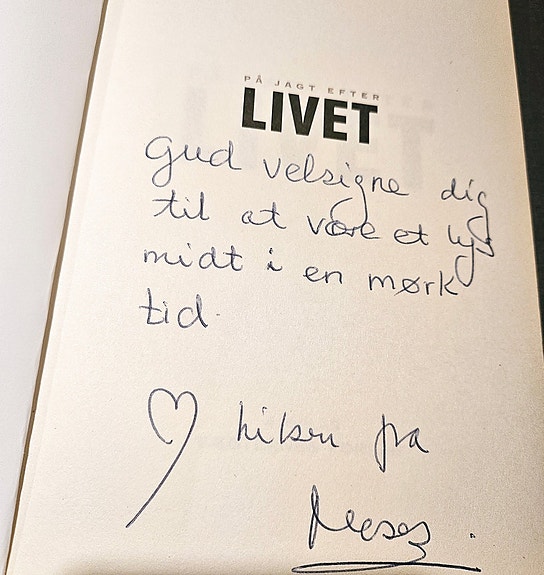 PÅ JAGT EFTER
LIVET
Gud velsigne dig
til at være et lys
midt i en mørk
tid.
hilsen fra
Moses.